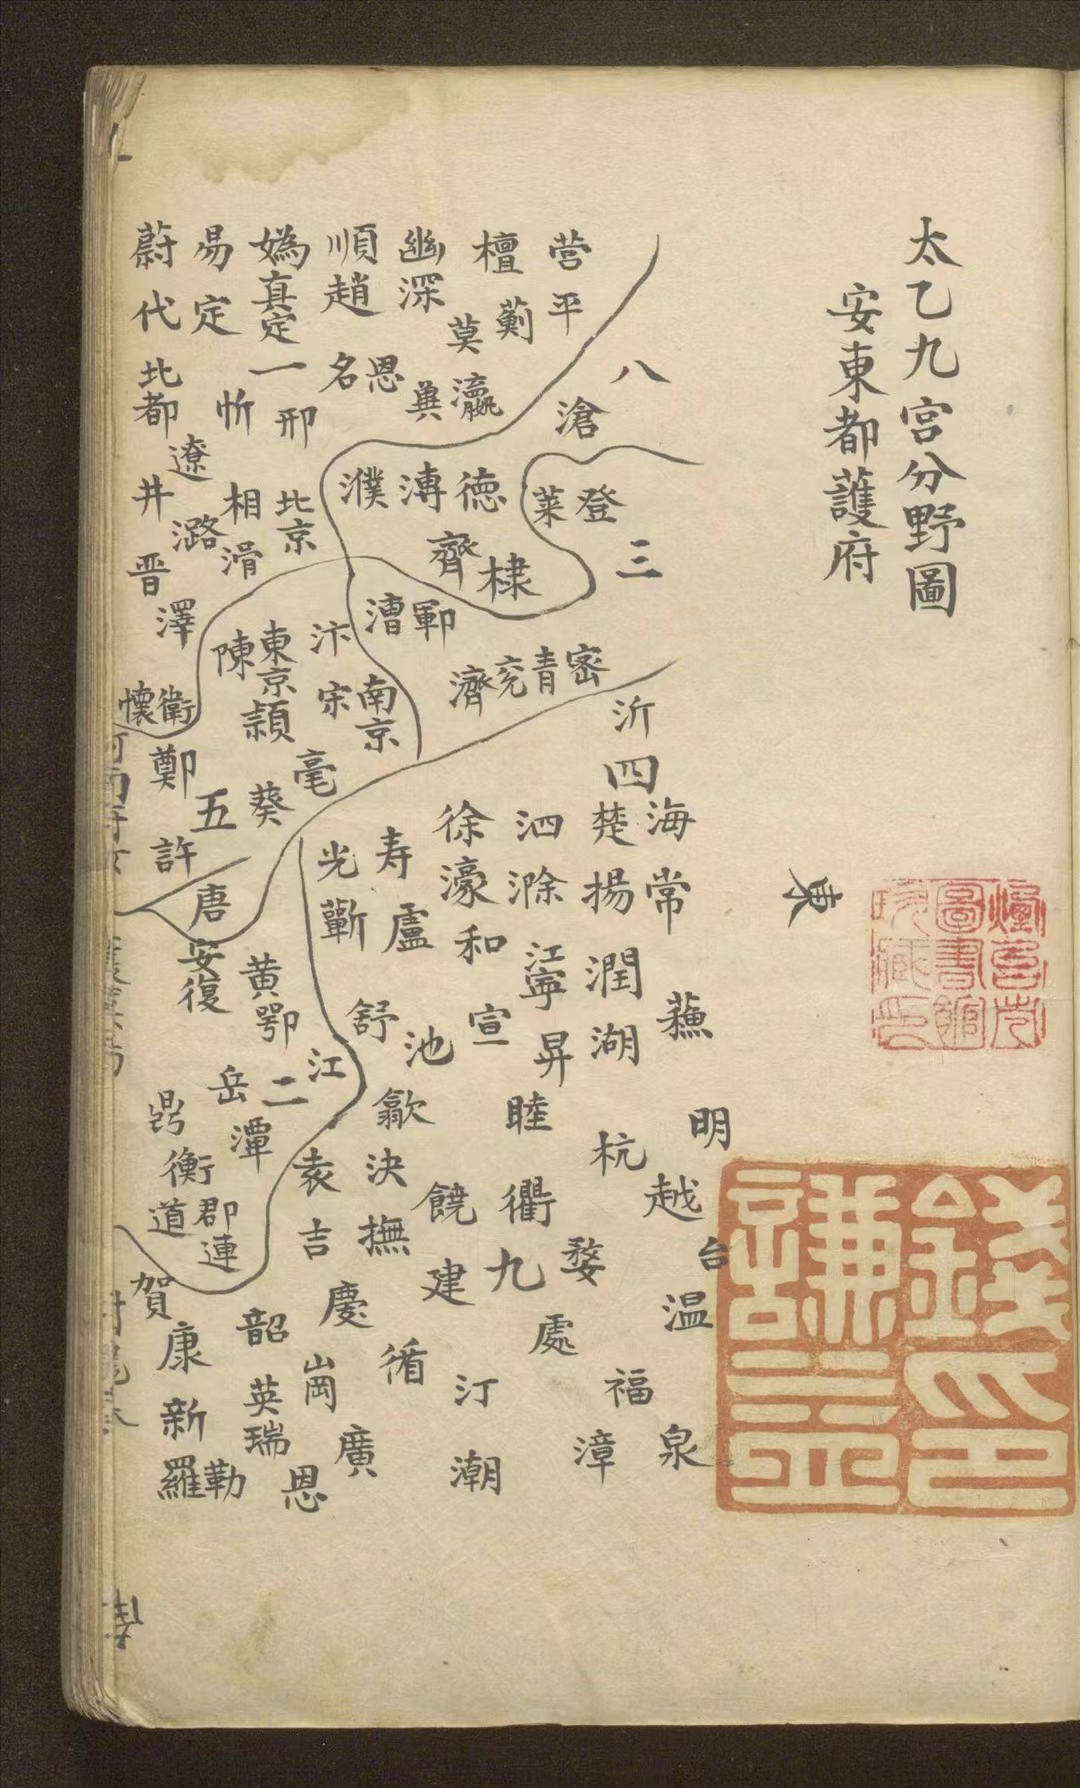 太乙九宫分野圖
安東都護府
東
錢謙益印
营平
檀薊
幽深
莫瀛
冀
順趙
恩
名
媯真定
一邢
易定
忻
蔚代
北都
遼
井
潞
晋
澤
相滑
北京
八
滄
登
莱
三
德
溥
濮
齊棣
鄆
漕
密
青
兖
濟
南京
汴宋
東京
陳
頴
亳
葵
衛
懷
鄭
五
許
唐
沂
四
海常
楚揚潤湖
泗滁
江寧
昇
徐濠和
宣
寿盧
光蘄
舒
池
蘓
明
越
台
温
杭
睦衢
婺
處
九
歙決撫
饒
建
袁吉
慶
循
汀
潮
福
泉
漳
安復
黄鄂
江
二
岳
潭
衡
道
郡連
賀
康
新
羅
勒
韶
英瑞
恩
廣